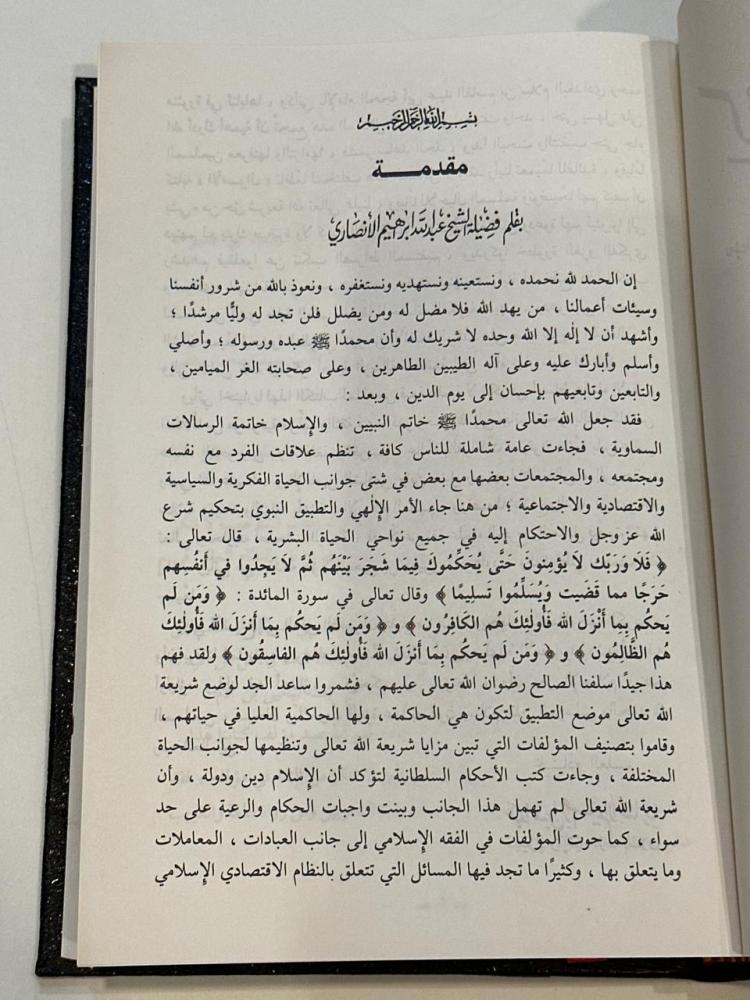 بسم الله الرحمن الرحيم
مقدمـــة
بقلم فضيلة الشيخ عبد الله إبراهيم الأنصاري
إن الحمد لله نحمده ، ونستعينه ونستهديه ونستغفره ، ونعوذ بالله من شرور أنفسنا
وسيئات أعمالنا ، من يهد الله فلا مضل له ومن يضلل فلن تجد له وليًّا مرشدًا ؛
وأشهد أن لا إلٰه إلا الله وحده لا شريك له وأن محمدًا ﷺ عبده ورسوله ؛ وأصلي
وأسلم وأبارك عليه وعلى آله الطيبين الطاهرين ، وعلى صحابته الغر الميامين ،
والتابعين وتابعيهم بإحسان إلى يوم الدين ، وبعد :
فقد جعل الله تعالى محمدًا ﷺ خاتم النبيين ، والإسلام خاتمة الرسالات
السماوية ، فجاءت عامة شاملة للناس كافة ، تنظم علاقات الفرد مع نفسه
ومجتمعه ، والمجتمعات بعضها مع بعض في شتى جوانب الحياة الفكرية والسياسية
والاقتصادية والاجتماعية ؛ من هنا جاء الأمر الإلٰهي والتطبيق النبوي بتحكيم شرع
الله عز وجل والاحتكام إليه في جميع نواحي الحياة البشرية ، قال تعالى :
﴿ فَلَا وَرَبِّك لَا يُؤمِنونَ حَتَّى يُحَكِّمُوكَ فِيمَا شَجَرَ بَيْنَهُم ثُمَّ لَا يَجِدُوا في أَنفُسِهِم
حَرَجًا مما قَضَيت وَيُسَلِّمُوا تَسلِيمًا ﴾ وقال تعالى في سورة المائدة : ﴿ وَمَن لَم
يَحكُم بِمَا أَنْزَلَ الله فَأُولٰئِكَ هُم الكَافِرُون ﴾ و ﴿ وَمَن لَم يَحكُم بِمَا أنزَلَ الله فَأُولٰئِكَ
هُم الظَّالِمُون ﴾ و ﴿ وَمَن لَم يَحكُم بِمَا أَنزَلَ الله فَأُولٰئِكَ هُم الفاسِقُون ﴾ ولقد فهم
هذا جيدًا سلفنا الصالح رضوان الله تعالى عليهم ، فشمروا ساعد الجد لوضع شريعة
الله تعالى موضع التطبيق لتكون هي الحاكمة ، ولها الحاكمية العليا في حياتهم ،
وقاموا بتصنيف المؤلفات التي تبين مزايا شريعة الله تعالى وتنظيمها لجوانب الحياة
المختلفة ، وجاءت كتب الأحكام السلطانية لتؤكد أن الإسلام دين ودولة ، وأن
شريعة الله تعالى لم تهمل هذا الجانب وبينت واجبات الحكام والرعية على حد
سواء ، كما حوت المؤلفات في الفقه الإسلامي إلى جانب العبادات ، المعاملات
وما يتعلق بها ، وكثيرًا ما تجد فيها المسائل التي تتعلق بالنظام الاقتصادي الإسلامي